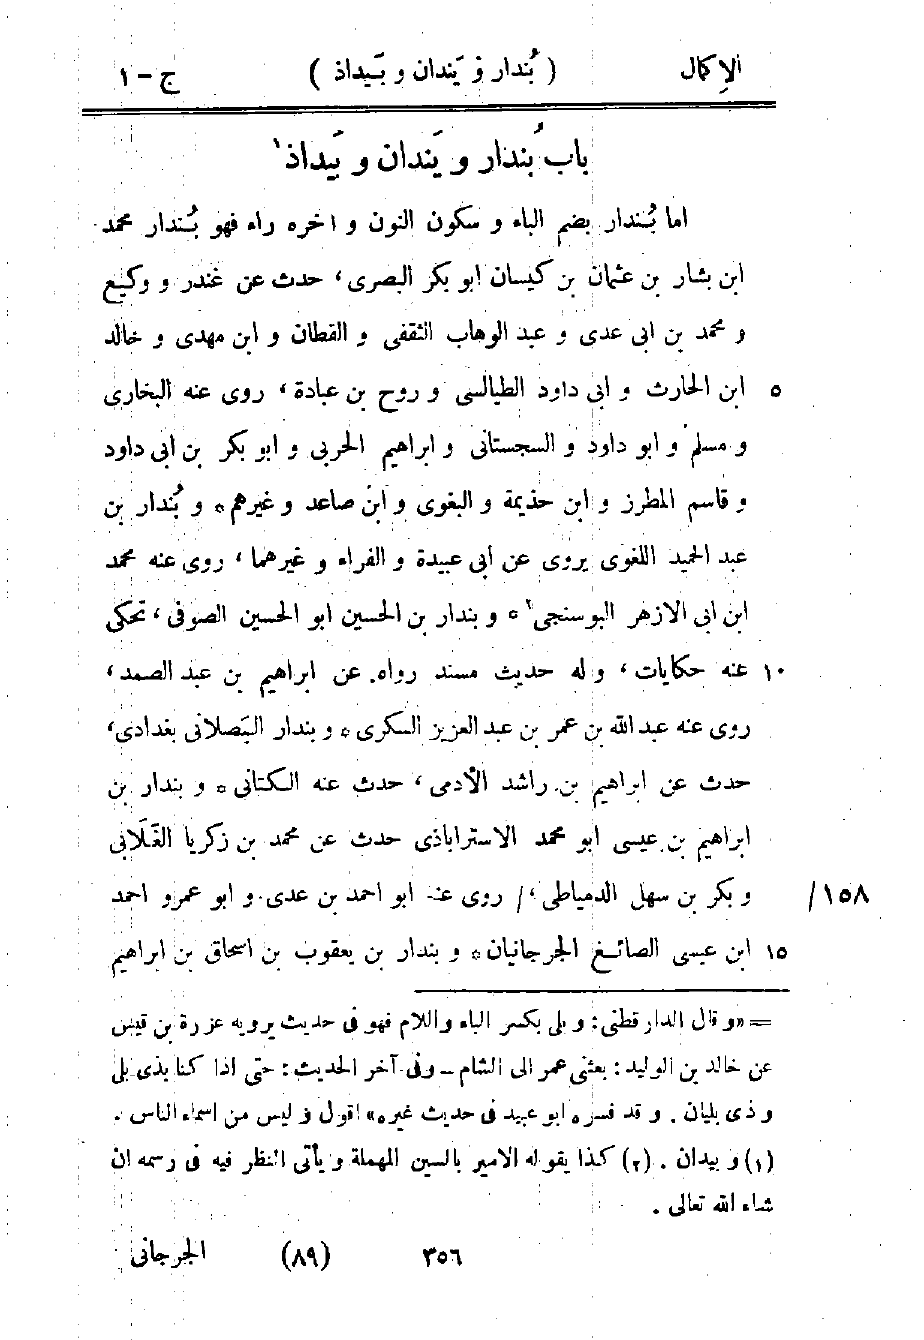 الإكمال ( بُندار و يَندان و بَيداذ ) ج - ١
باب بُندار و يَندان و بَيداذ١
اما بُندار بضم الباء و سكون النون و اخره راء فهو بُندار محمد
ابن بشار بن عثمان بن كيسان ابو بكر البصرى، حدث عن غندر و وكيع
و محمد بن ابى عدى و عبد الوهاب الثقفى و القطان و ابن مهدى و خالد
٥ ابن الحارث و ابى داود الطيالسى و روح بن عبادة، روى عنه البخارى
و مسلم و ابو داود و السجستانى و ابراهيم الحربى و ابو بكر بن ابى داود
و قاسم المطرز و ابن خذيمة و البغوى و ابن صاعد و غيرهم ه و بُندار بن
عبد الحميد اللغوى يروى عن ابى عبيدة و الفراء و غيرهما، روى عنه محمد
ابن ابى الازهر البوسنجى٢ ه و بندار بن الحسين ابو الحسين الصوفى، تحكى
١٠ عنه حكايات، و له حديث مسند رواه عن ابراهيم بن عبد الصمد،
روى عنه عبد الله بن عمر بن عبد العزيز السكرى ه و بندار البَصلانى بغدادى،
حدث عن ابراهيم بن راشد الأدمى، حدث عنه الكتانى ه و بندار بن
ابراهيم بن عيسى ابو محمد الاستراباذى حدث عن محمد بن زكريا الغَلّابى
١٥٨/ و بكر بن سهل الدمياطى، / روى عنه ابو احمد بن عدى و ابو عمرو احمد
١٥ ابن عيسى الصائغ الجرجانيان ه و بندار بن يعقوب بن اسحاق بن ابراهيم
= «و قال الدارقطنى: و بلى بكسر الباء واللام فهو فى حديث يرويه عزرة بن قيس
عن خالد بن الوليد: بعثنى عمر الى الشام - وفى آخر الحديث: حتى اذا كنا بذى بلى
و ذى بليان. و قد فسره ابو عبيد فى حديث غيره» اقول و ليس من اسماء الناس .
(١) و بيدان . (٢) كذا يقوله الامير بالسين المهملة و يأتى النظر فيه فى رسمه ان
شاء الله تعالى .
٣٥٦ (٨٩) الجرجانى